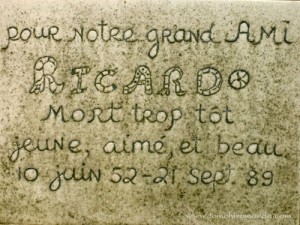 pour notre grand AMi
RICARDO
Mort trop tôt
jeune, aimé, et beau
10 juin 52-21 Sept 89